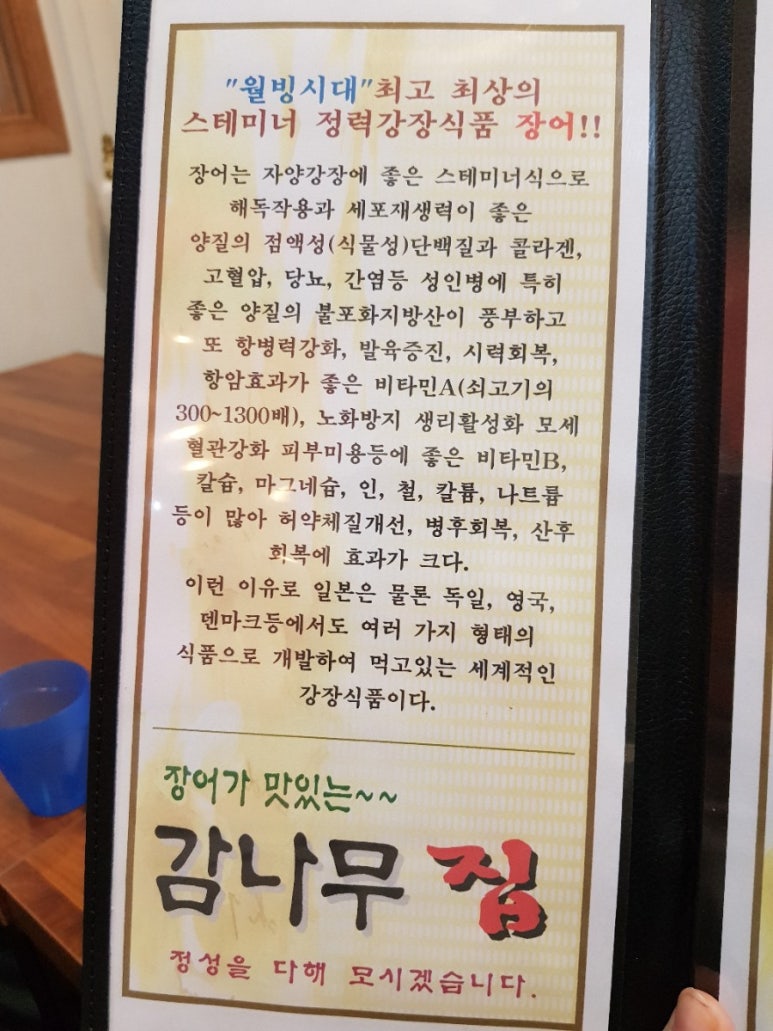 "월빙시대"최고 최상의
스테미너 정력강장식품 장어!!
장어는 자양강장에 좋은 스테미너식으로
해독작용과 세포재생력이 좋은
양질의 점액성(식물성)단백질과 콜라겐,
고혈압, 당뇨, 간염등 성인병에 특히
좋은 양질의 불포화지방산이 풍부하고
또 항병력강화, 발육증진, 시력회복,
항암효과가 좋은 비타민A(쇠고기의
300~1300배), 노화방지 생리활성화 모세
혈관강화 피부미용등에 좋은 비타민B,
칼슘, 마그네슘, 인, 철, 칼륨, 나트륨
등이 많아 허약체질개선, 병후회복, 산후
회복에 효과가 크다.
이런 이유로 일본은 물론 독일, 영국,
덴마크등에서도 여러 가지 형태의
식품으로 개발하여 먹고있는 세계적인
강장식품이다.
장어가 맛있는~~
감나무 집
정성을 다해 모시겠습니다.